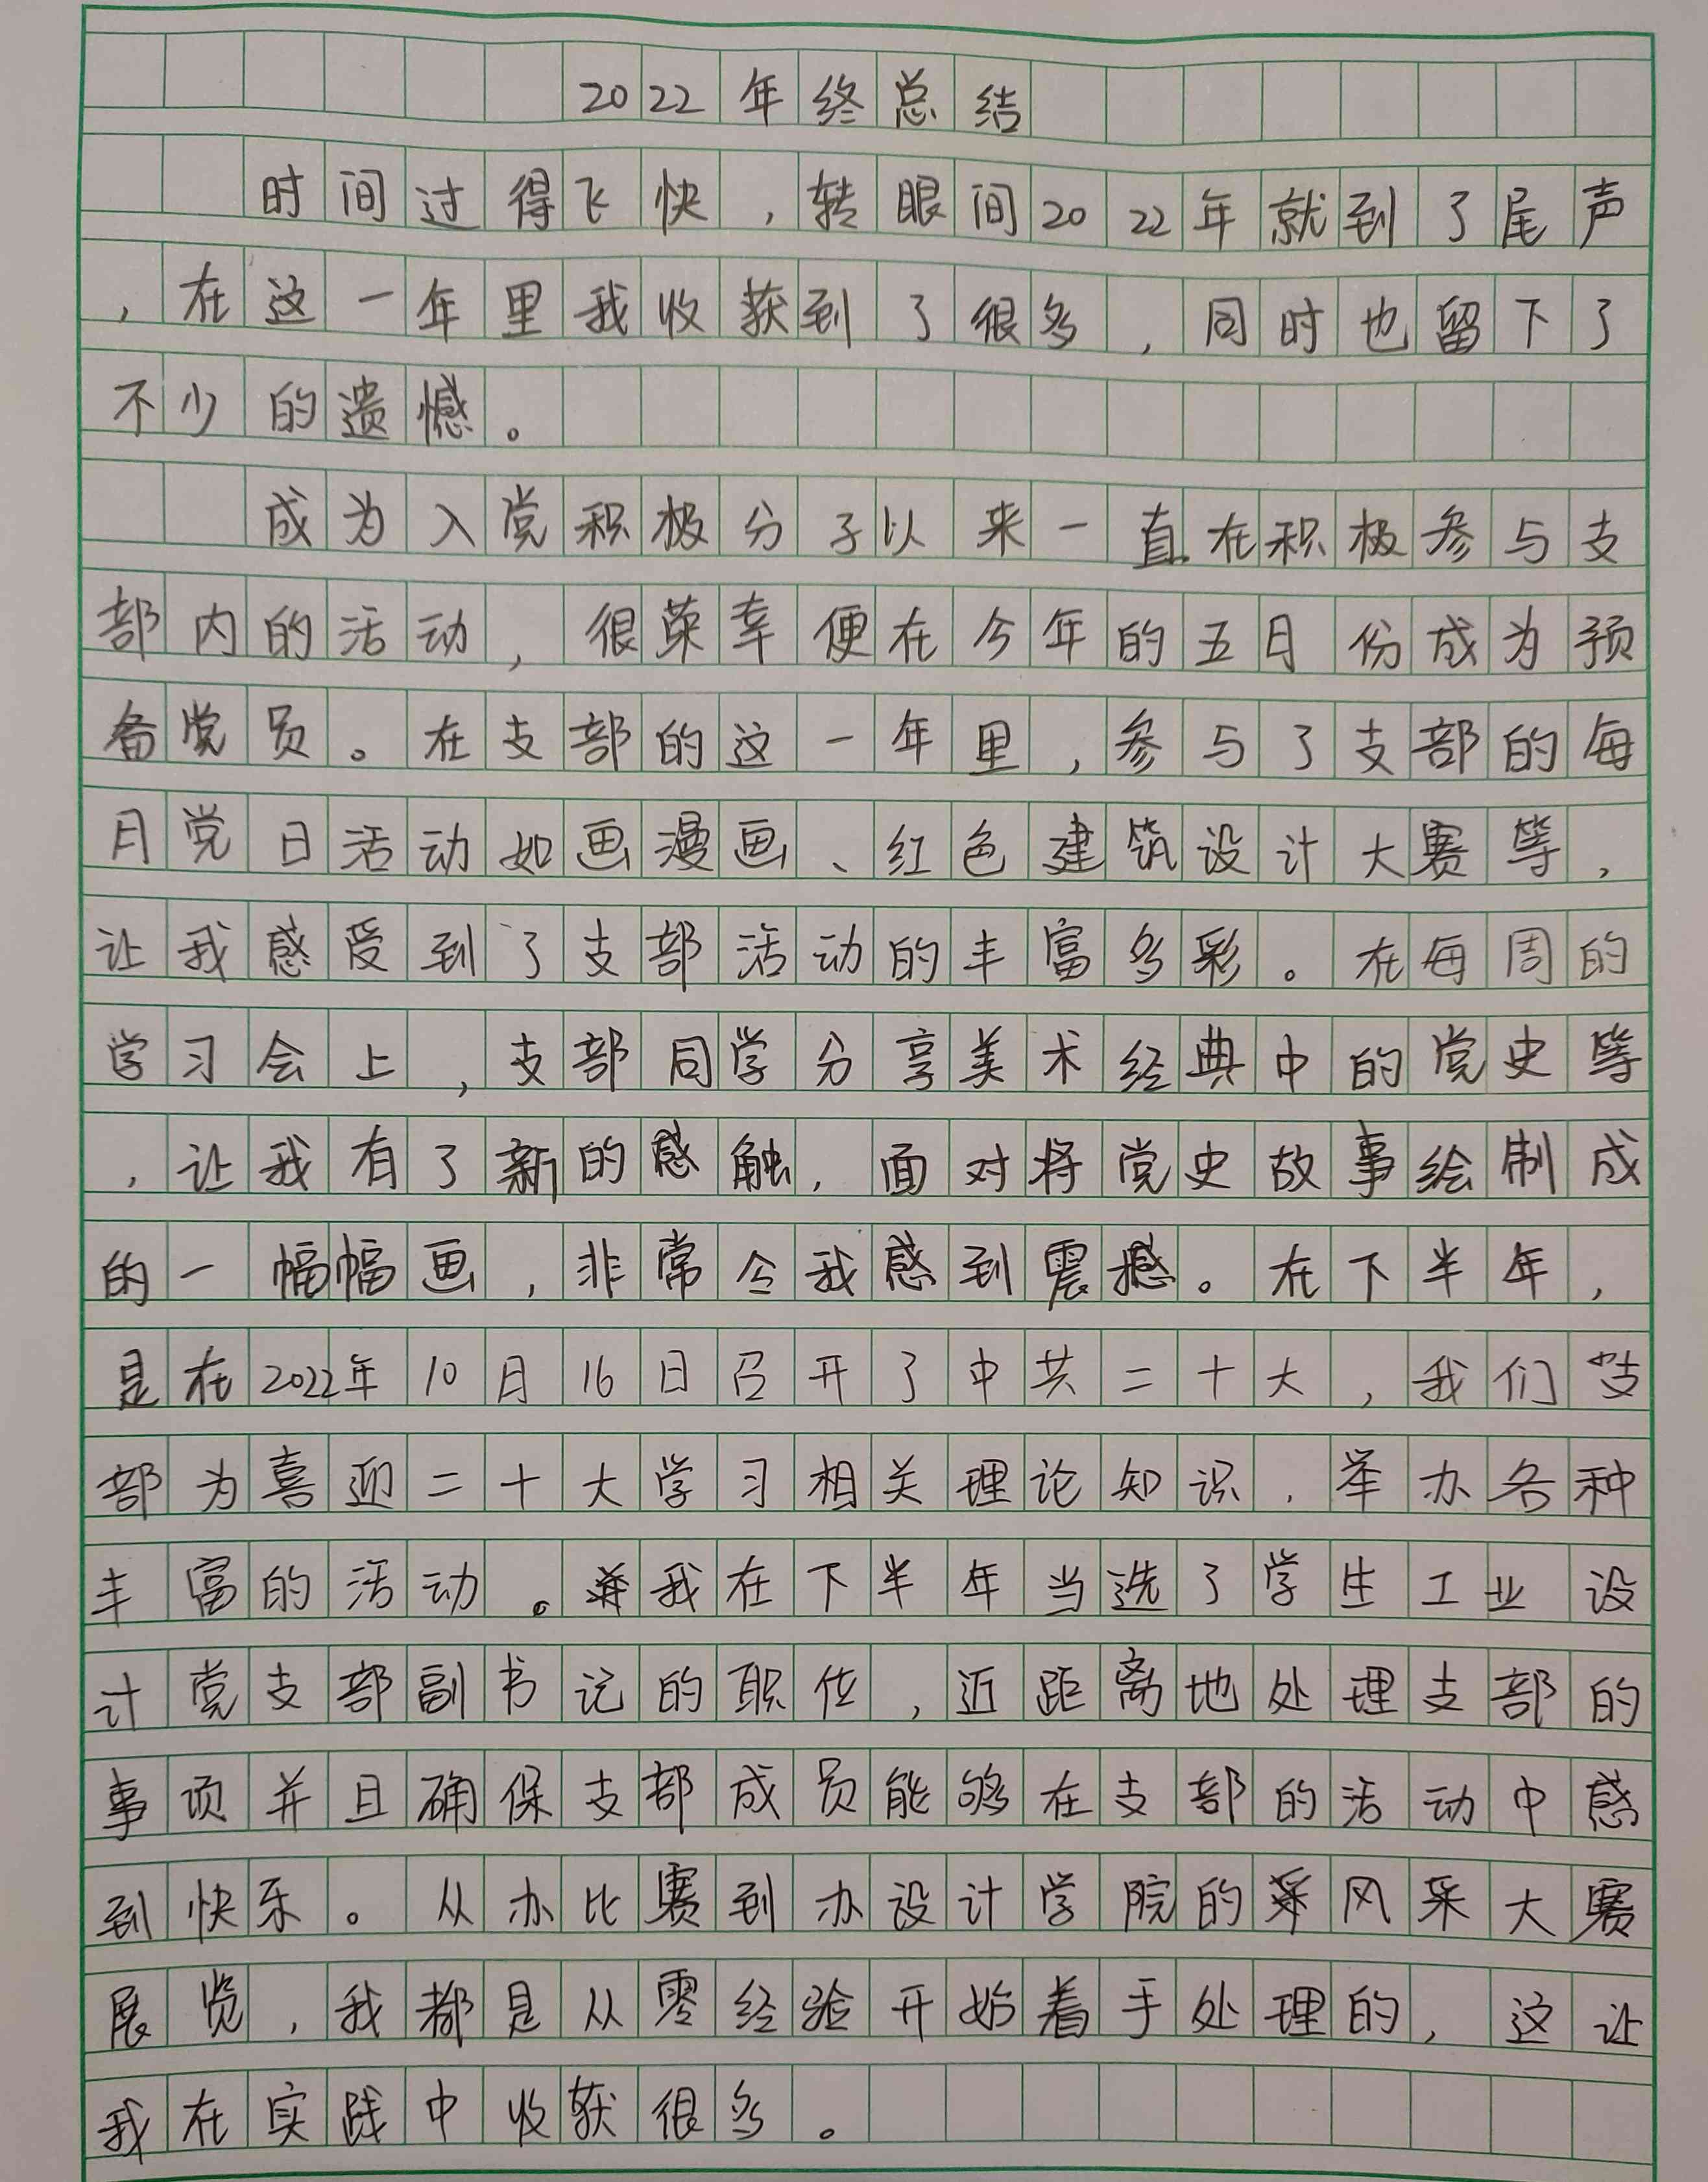 2022年终总结
时间过得飞快,转眼间2022年就到了尾声
,在这一年里我收获到了很多,同时也留下了
不少的遗憾。
成为入党积极分子以来一直在积极参与支
部内的活动,很荣幸便在今年的五月份成为预
备党员。在支部的这一年里,参与了支部的每
月党日活动如画漫画、红色建筑设计大赛等,
让我感受到了支部活动的丰富多彩。在每周的
学习会上,支部同学分享美术经典中的党史等
,让我有了新的感触,面对将党史故事绘制成
的一幅幅画,非常令我感到震撼。在下半年,
是在2022年10月16日召开了中共二十大,我们支
部为喜迎二十大学习相关理论知识,举办各种
丰富的活动。我在下半年当选了学生工业设
计党支部副书记的职位,近距离地处理支部的
事项并且确保支部成员能够在支部的活动中感
到快乐。从办比赛到办设计学院的风采大赛
展览,我都是从零经验开始着手处理的,这让
我在实践中收获很多。